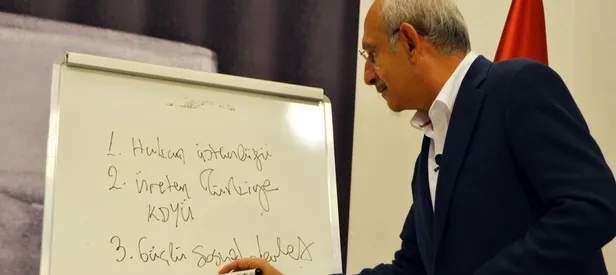 1. Hukuk üstünlüğü
2. Üreten Türkiye
KDYÜ
3. Güçlü Sosyal devlet